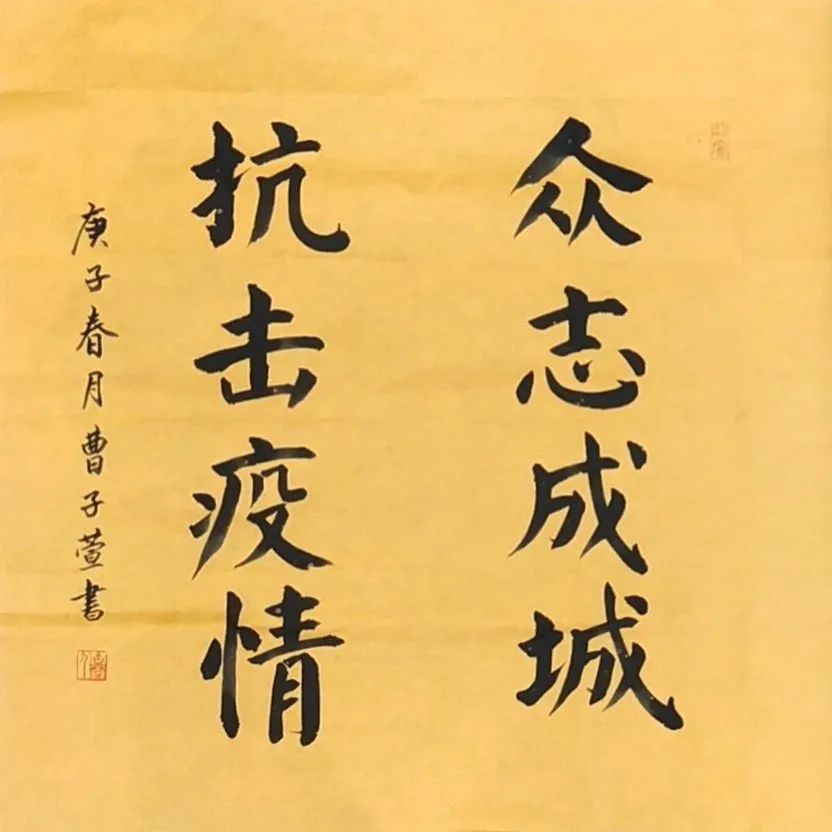 众志成城
抗击疫情
庚子春月曹子萱書